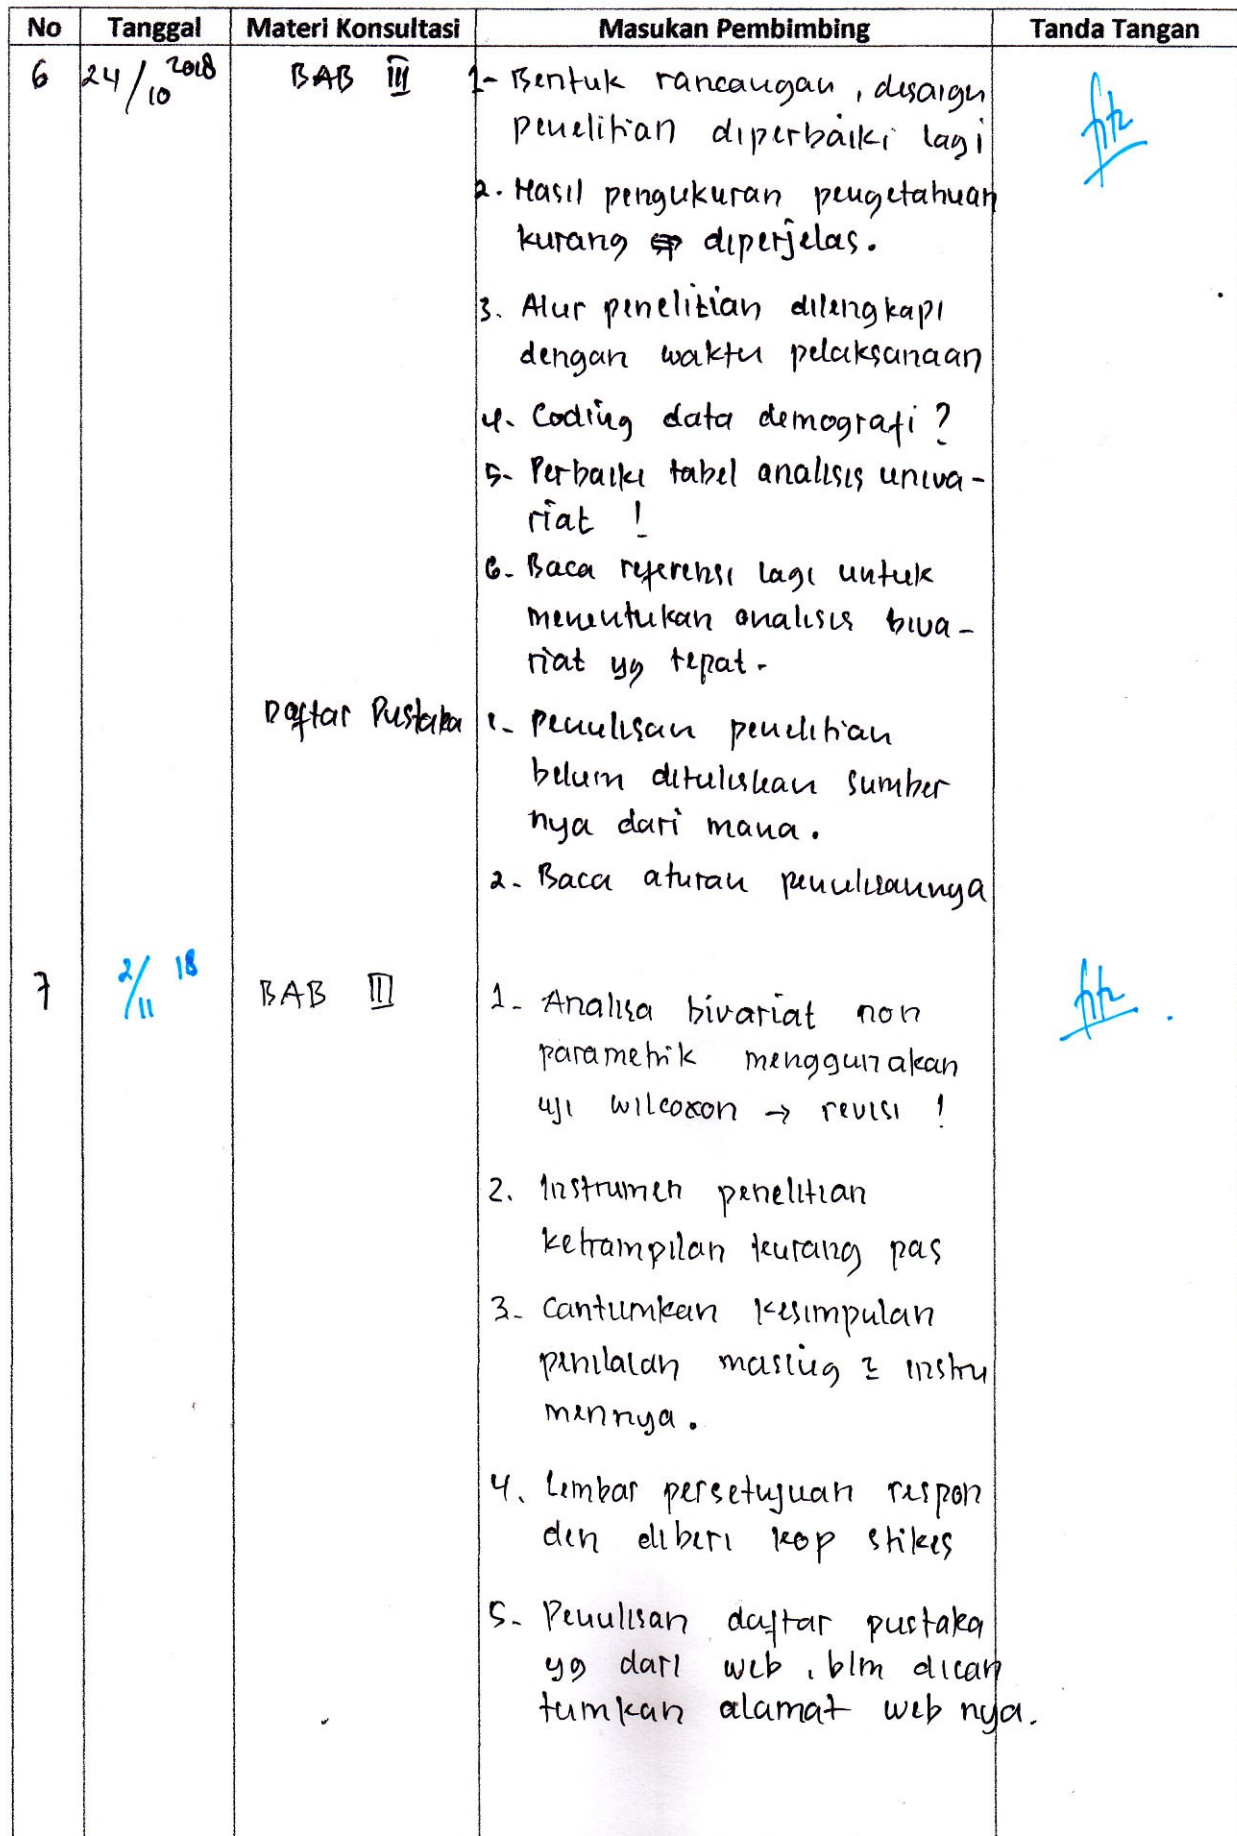 No Tanggal Materi Konsultasi Masukan Pembimbing Tanda Tangan
6 24/10 2018 BAB III 1- Bentuk rancangan, desaign
penelitian diperbaiki lagi
2. Hasil pengukuran pengetahuan
kurang diperjelas.
3. Alur penelitian dilengkapi
dengan waktu pelaksanaan
4. Coding data demografi ?
5- Perbaiki tabel analisis univa-
riat !
6- Baca referensi lagi untuk
menentukan analisis biva-
riat yg tepat-
Daftar Pustaka 1- Penulisan penelitian
belum dituliskan sumber
nya dari mana.
2- Baca aturan penulisannya
7 2/11 18 BAB III 1- Analisa bivariat non
parametrik menggunakan
uji wilcoxon → revisi !
2. Instrumen penelitian
ketrampilan kurang pas
3- Cantumkan kesimpulan
penilaian masing 2 instru
mennya.
4. Lembar persetujuan respon
den diberi kop stikes
5- Penulisan daftar pustaka
yg dari web, blm dican
tumkan alamat web nya.